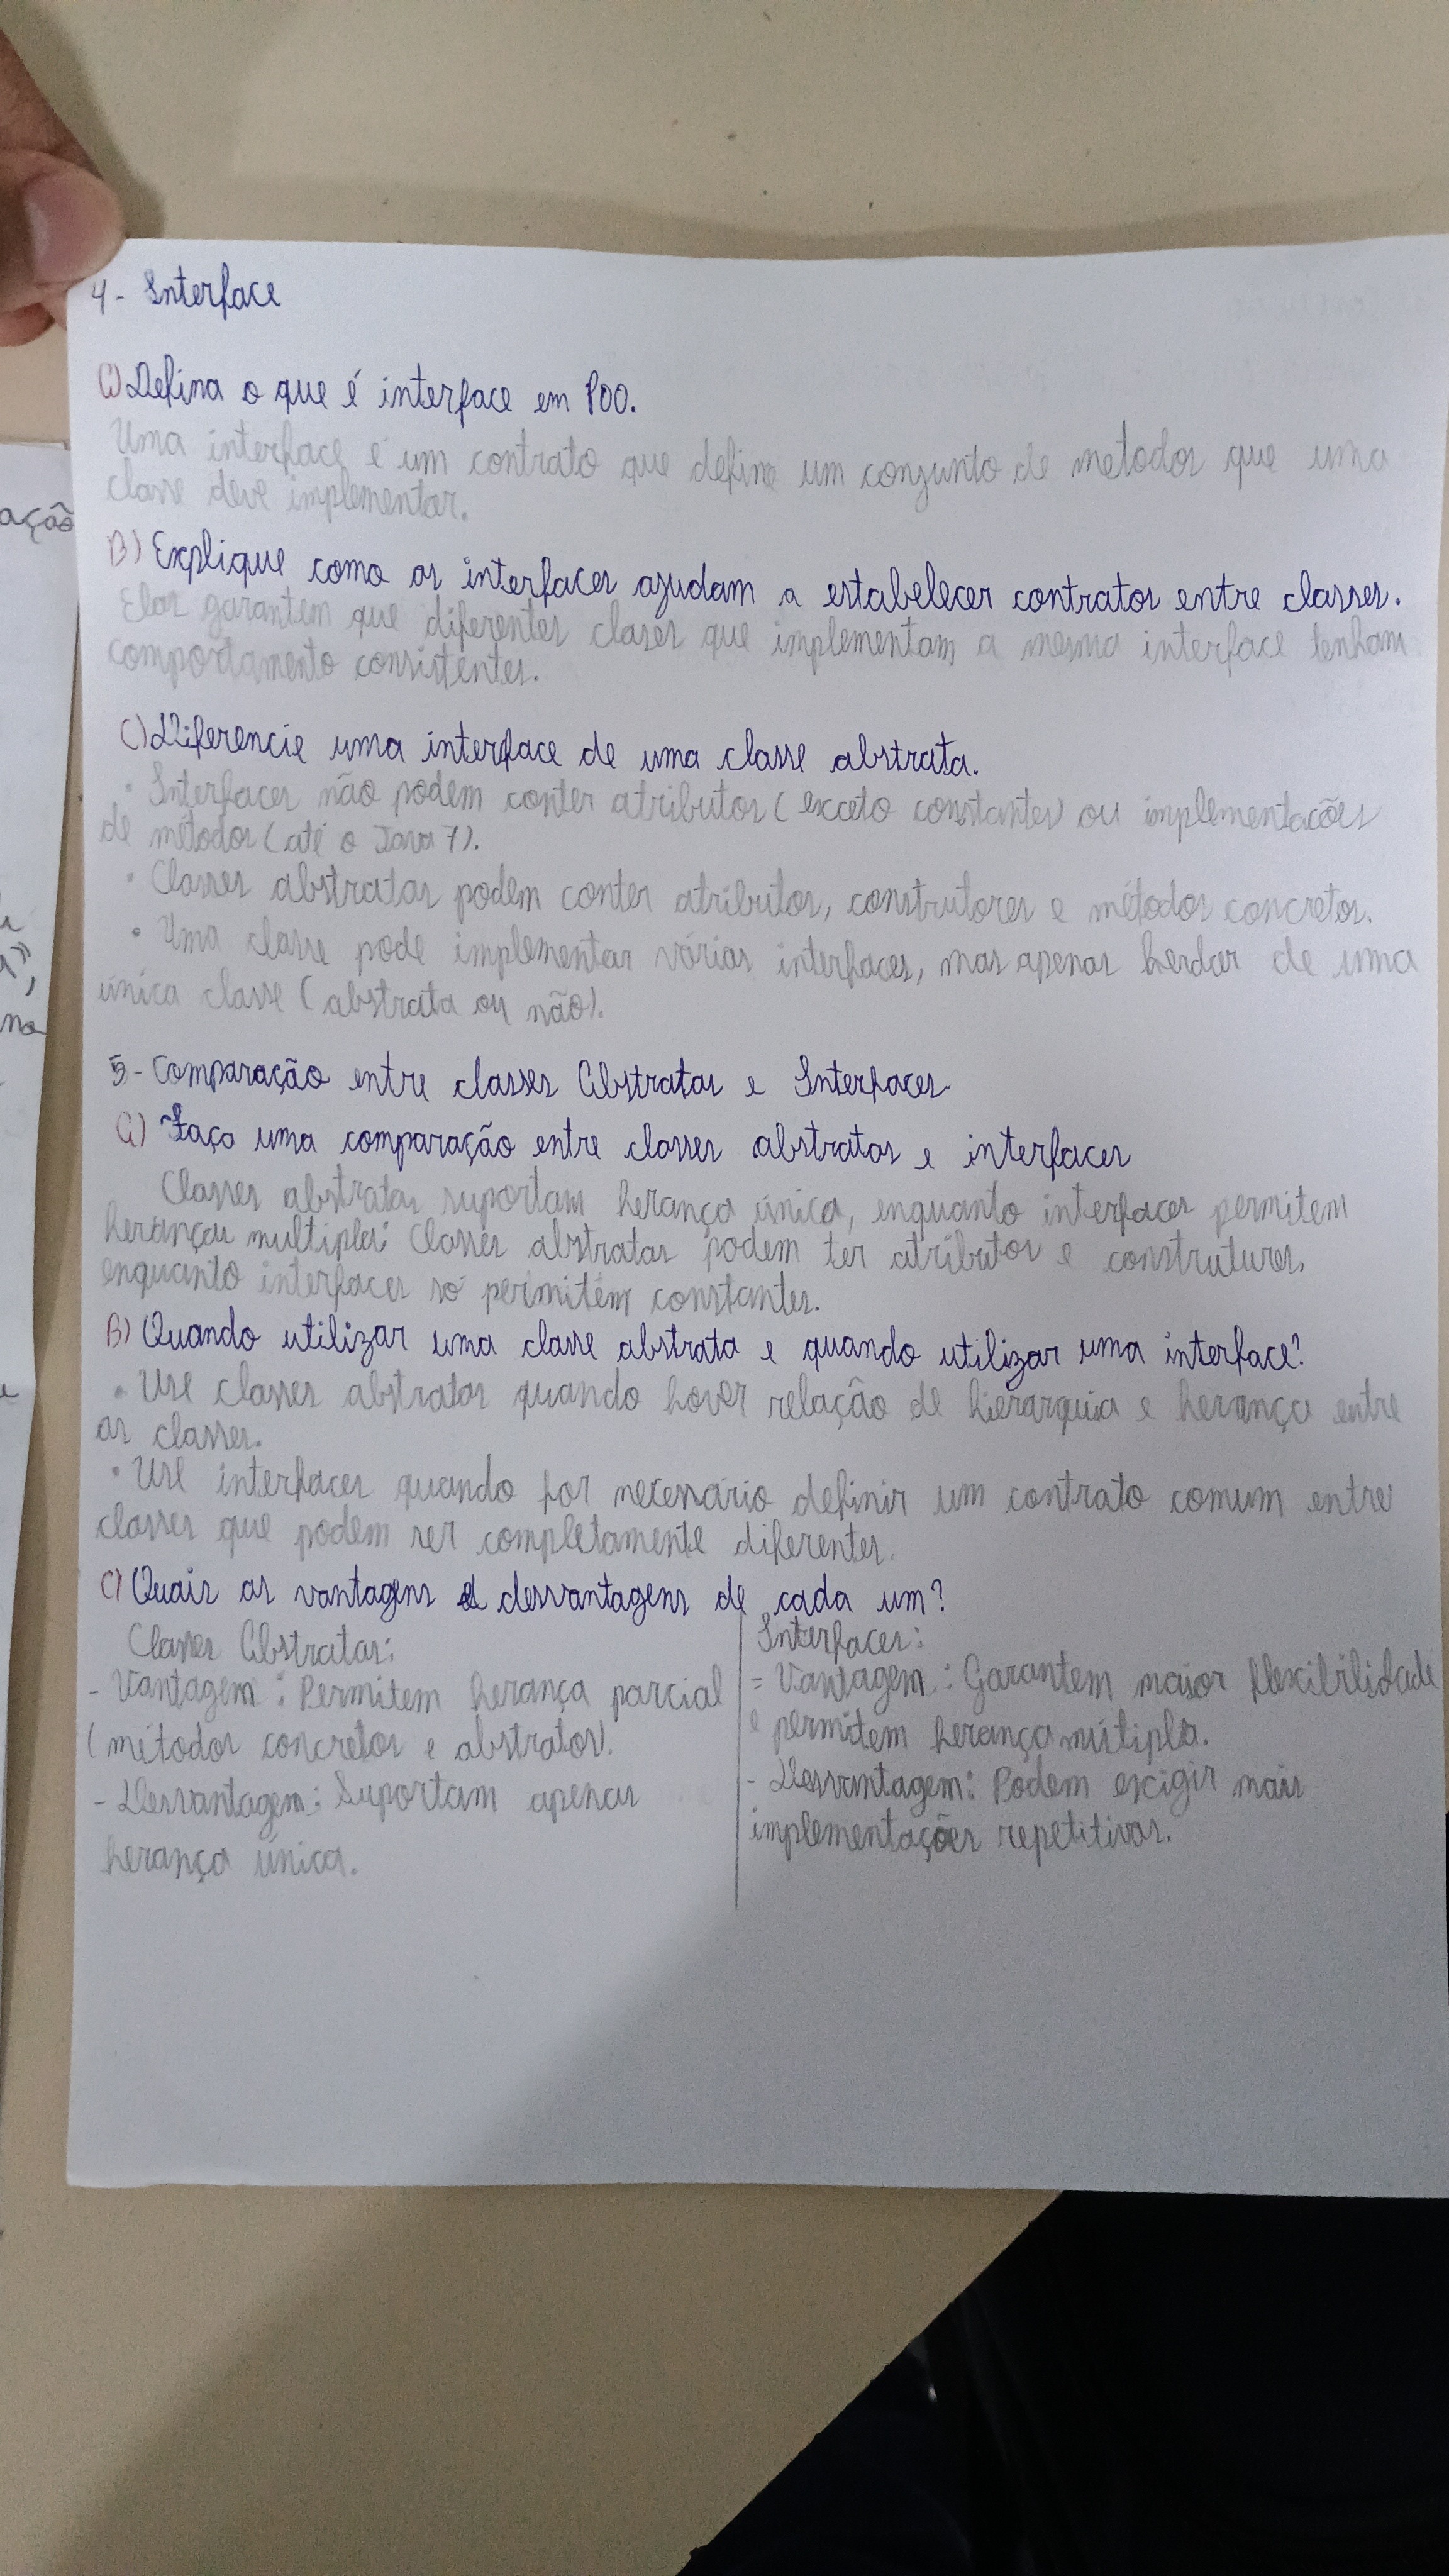 4- Interface
A) Defina o que é interface em POO.
Uma interface é um contrato que define um conjunto de metodos que uma
classe deve implementar.
B) Explique como as interfaces ajudam a estabelecer contratos entre classes.
Elas garantem que diferentes clases que implementam a mesma interface tenham
comportamento consistentes.
C) Diferencie uma interface de uma classe abstrata.
• Interfaces não podem conter atributos (exceto constantes) ou implementações
de métodos (até o Java 7).
• Classes abstratas podem conter atributos, construtores e métodos concretos.
• Uma classe pode implementar várias interfaces, mas apenas herdar de uma
única classe (abstrata ou não).
5- Comparação entre classes Abstratas e Interfaces.
A) Faça uma comparação entre classes abstratas e interfaces
Classes abstratas suportam herança única, enquanto interfaces permitem
heranças multipla; Classes abstratas podem ter atributos e construtures,
enquanto interfaces só permitem constantes.
B) Quando utilizar uma classe abstrata e quando utilizar uma interface?
• Use classes abstratas quando hover relação de hierarquia e herança entre
as classes.
• Use interfaces quando for necessário definir um contrato comum entre
classes que podem ser completamente diferentes.
C) Quais as vantagens e desvantagens de cada um?
Classes Abstratas:
- Vantagem: Permitem herança parcial
(métodos concretos e abstratos).
- Desvantagem: Suportam apenas
herança única.
Interfaces:
= Vantagem: Garantem maior flexibilidade
e permitem herança múltipla.
- Desvantagem: Podem exigir mais
implementações repetitivas.
ação
na